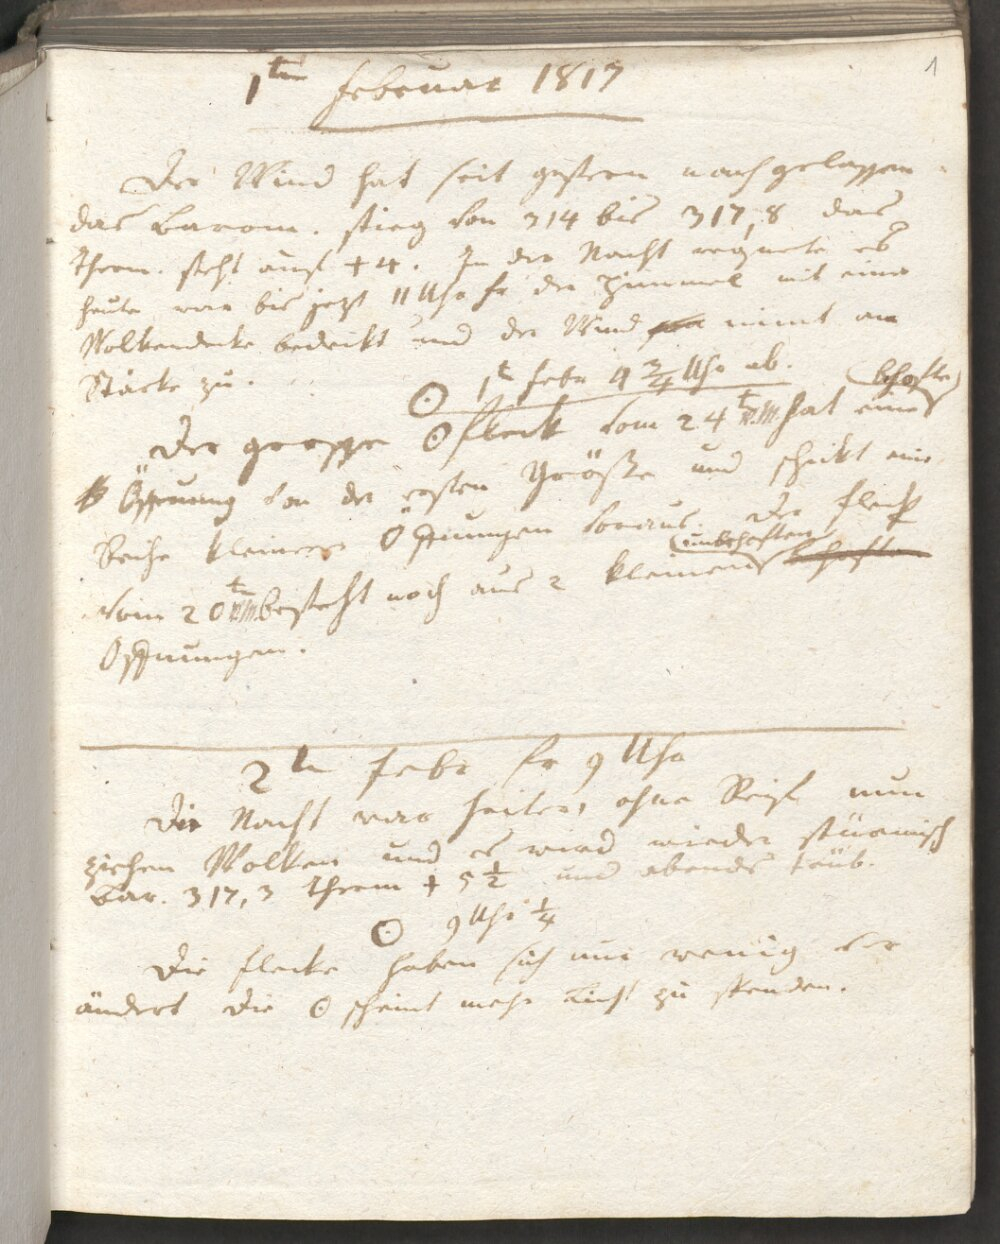 1
1ten Februar 1817
Der Wind hat seit gestern nachgelassen.
das Barom. stieg von 314 bis 317,8 das
Therm. steht auf +4. In der Nacht regnete es
heute war bis jezt 11 Uhr fr der Himmel mit einer
Wolkendecke bedeckt und der Wind nimt an
Stärke zu.
☉ 1t Febr 4 3/4 Uhr ab.
Der grosse ☉fleck vom 24t v.M. hat eine behofte
Öffnung von der ersten Größe und schickt eine
Reihe kleinerer Öffnungen voraus. Der Fleck
vom 20t v.M. besteht noch aus 2 kleinen unbehoften
Öffnungen.
2tn Febr fr 9 Uhr
Die Nacht war heiter, ohne Reif nun
ziehen Wolken und es wird wieder stürmisch
Bar. 317,3 Therm + 5 1/2 und abends trüb.
☉ 9 Uhr 1/4
Die Flecke haben sich nur wenig ver
ändert die ☉ scheint mehr Licht zu spenden.